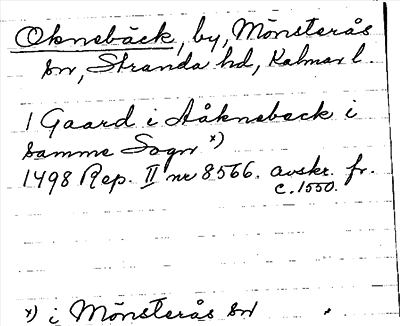 Oknebäck, by, Mönsterås
sn, Stranda hd, Kalmar l.
1 Gaard i Aåknebeck i
samme Sogn x)
1498 Rep. II nr 8566. avskr. fr.
c. 1550.
x) i Mönsterås sn